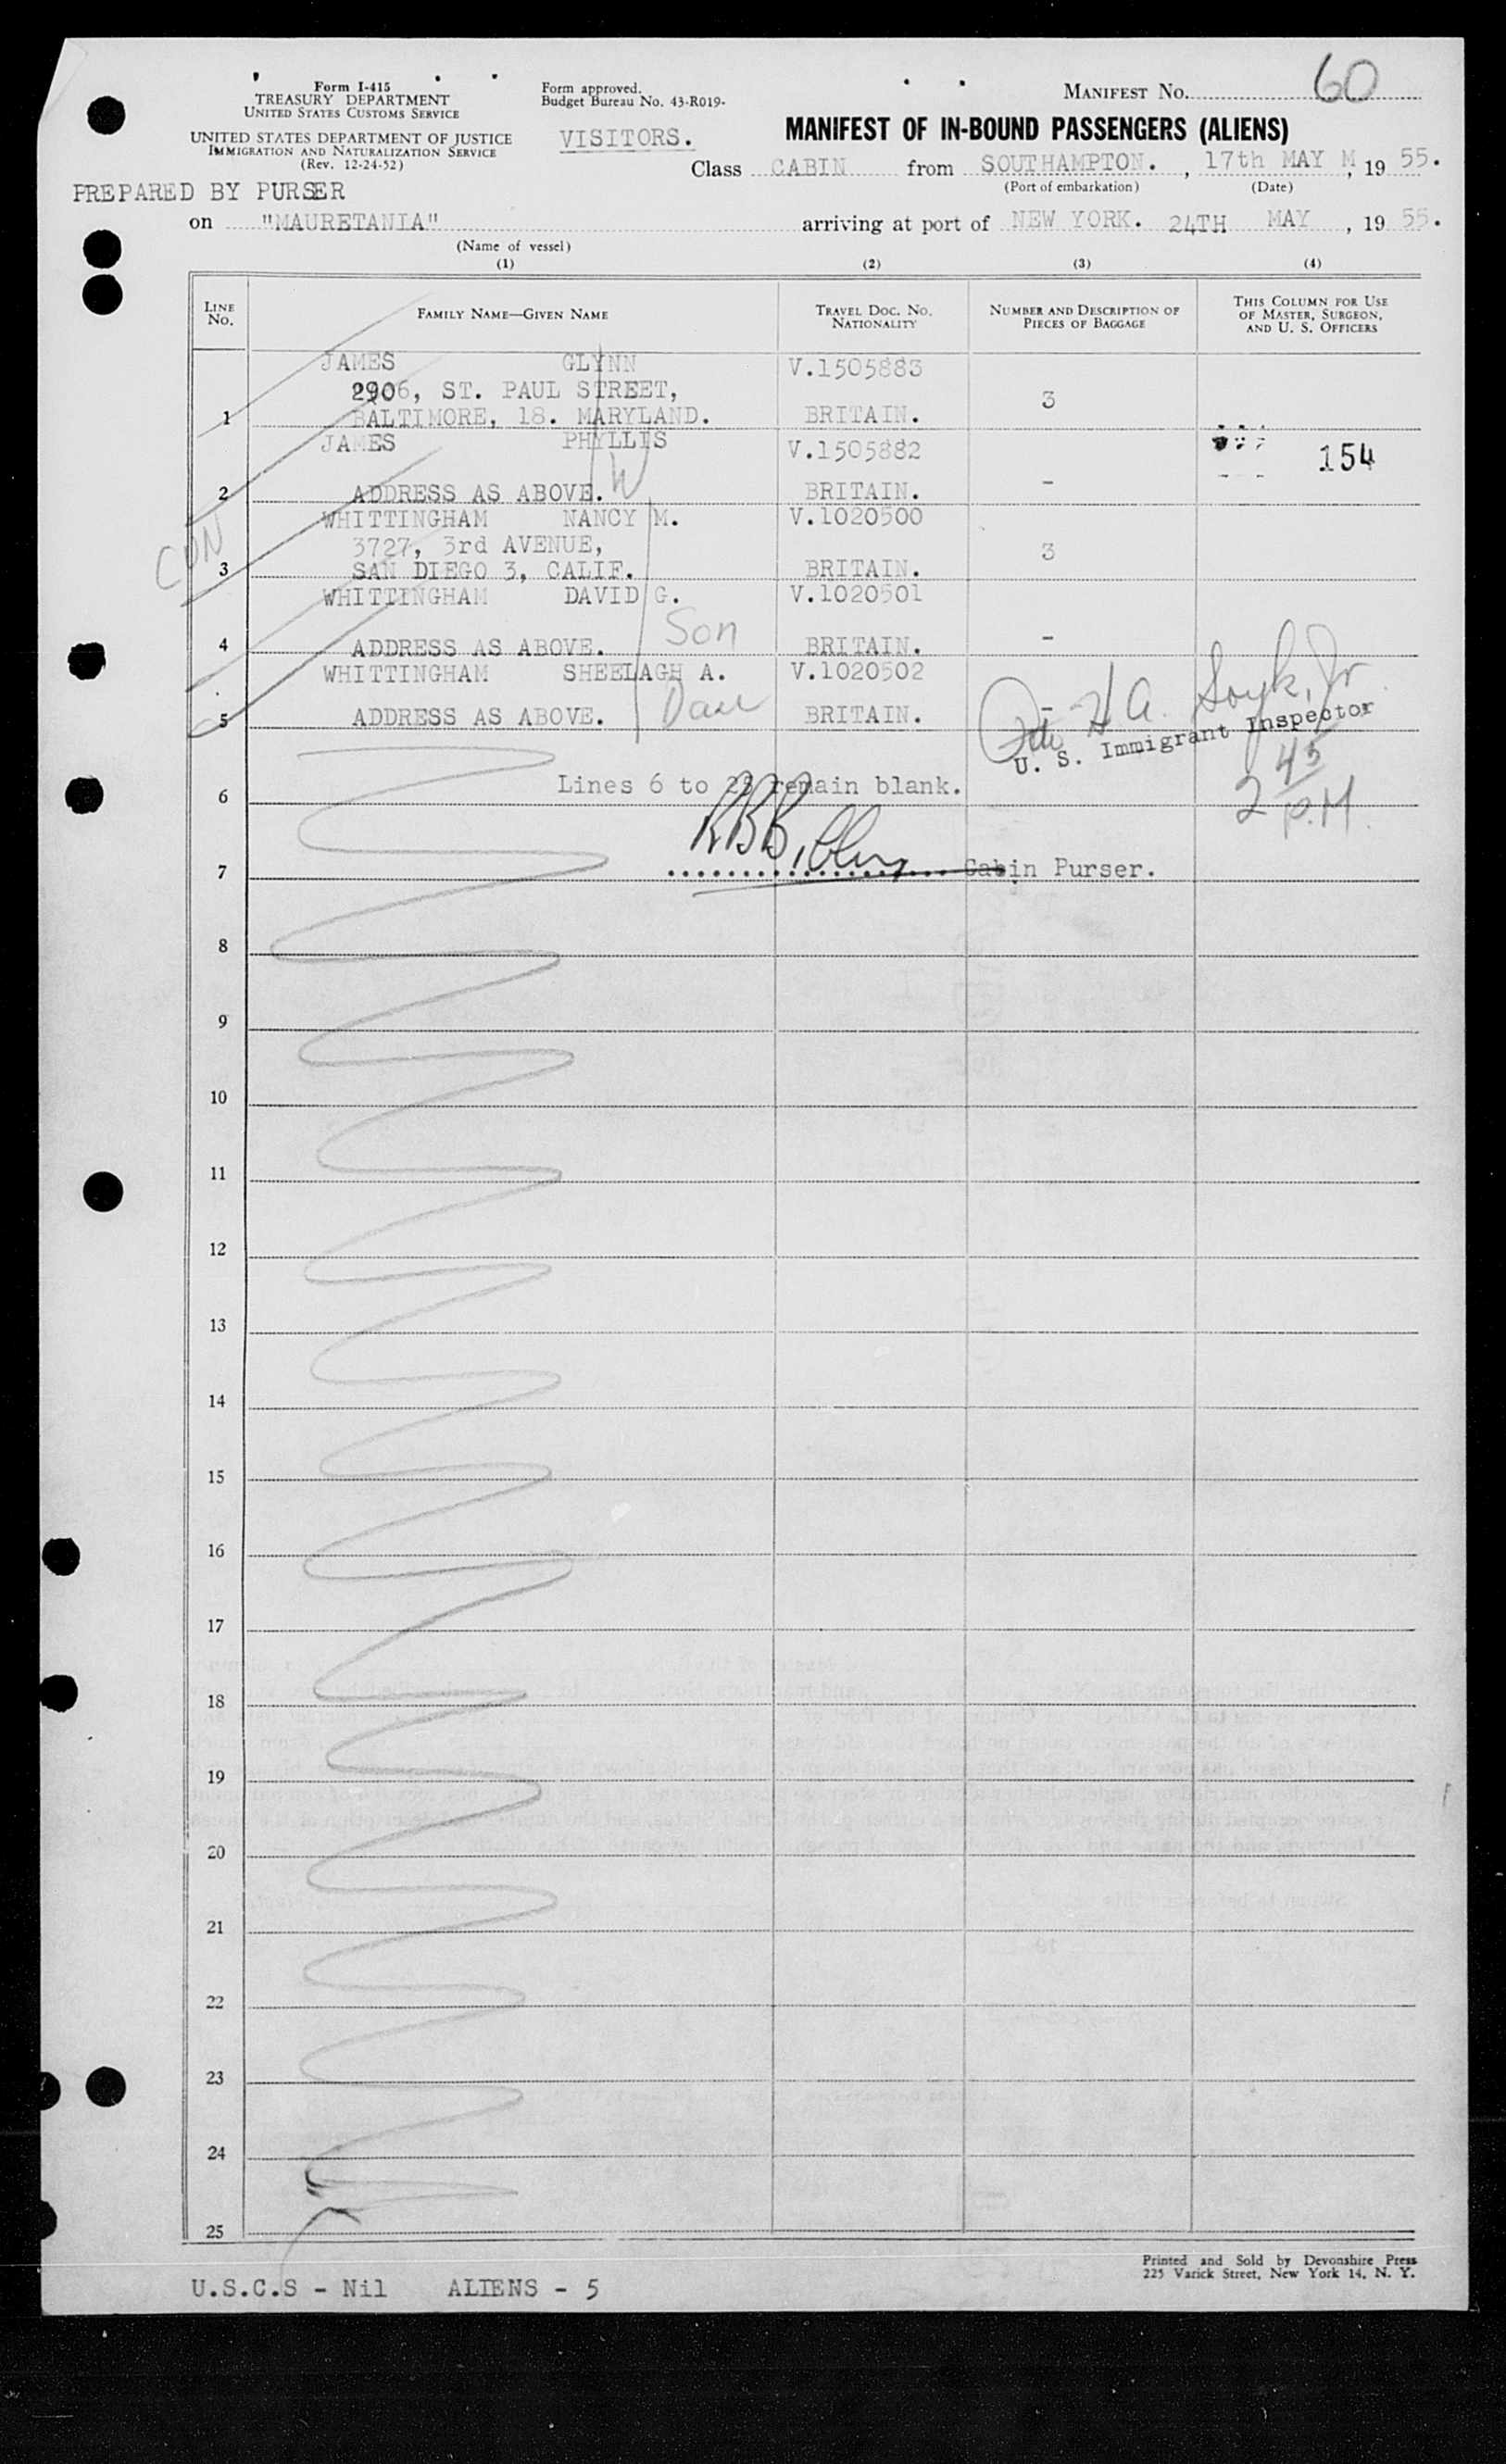 60
Form I-415
TREASURY DEPARTMENT
UNITED STATES CUSTOMS SERVICE
UNITED STATES DEPARTMENT OF JUSTICE
IMMIGRATION AND NATURALIZATION SERVICE
(Rev. 12-24-52)
Form approved.
Budget Bureau No. 43-R019-
VISITORS.
MANIFEST NO.
MANIFEST OF IN-BOUND PASSENGERS (ALIENS)
Class CABIN from SOUTHAMPTON. , 17th MAY M, 19 55.
(Port of embarkation) (Date)
PREPARED BY PURSER
on "MAURETANIA" arriving at port of NEW YORK. 24TH MAY , 19 55.
(Name of vessel)
(1) (2) (3) (4)
LINE NO.
FAMILY NAME—GIVEN NAME
TRAVEL DOC. NO.
NATIONALITY
NUMBER AND DESCRIPTION OF
PIECES OF BAGGAGE
THIS COLUMN FOR USE
OF MASTER, SURGEON,
AND U. S. OFFICERS
JAMES GLYNN V.1505883
2906, ST. PAUL STREET, 3
1 BALTIMORE, 18. MARYLAND. BRITAIN.
JAMES PHYLLIS V.1505882 154
W
2 ADDRESS AS ABOVE. BRITAIN. -
WHITTINGHAM NANCY M. V.1020500
CON
3727, 3rd AVENUE, 3
3 SAN DIEGO 3, CALIF. BRITAIN.
WHITTINGHAM DAVID G. V.1020501
Son
4 ADDRESS AS ABOVE. BRITAIN. -
WHITTINGHAM SHEELAGH A. V.1020502
Dau
5 ADDRESS AS ABOVE. BRITAIN. -
U. S. Immigrant Inspector
2 45
P.M.
Lines 6 to 25 remain blank.
6
7 Cabin Purser.
8
9
10
11
12
13
14
15
16
17
18
19
20
21
22
23
24
25
Printed and Sold by Devonshire Press
225 Varick Street, New York 14, N. Y.
U.S.C.S - Nil ALIENS - 5